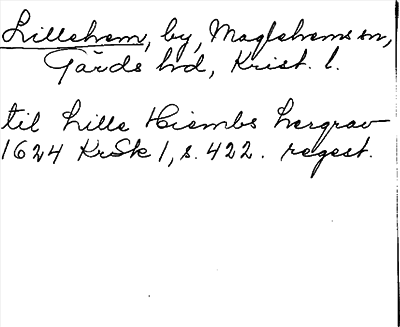 Lillehem, by, Maglehems sn,
Gärds hd, Krist. l.
til Lille Hiembs Lergrav
1624 KrSk 1, s. 422. regest.